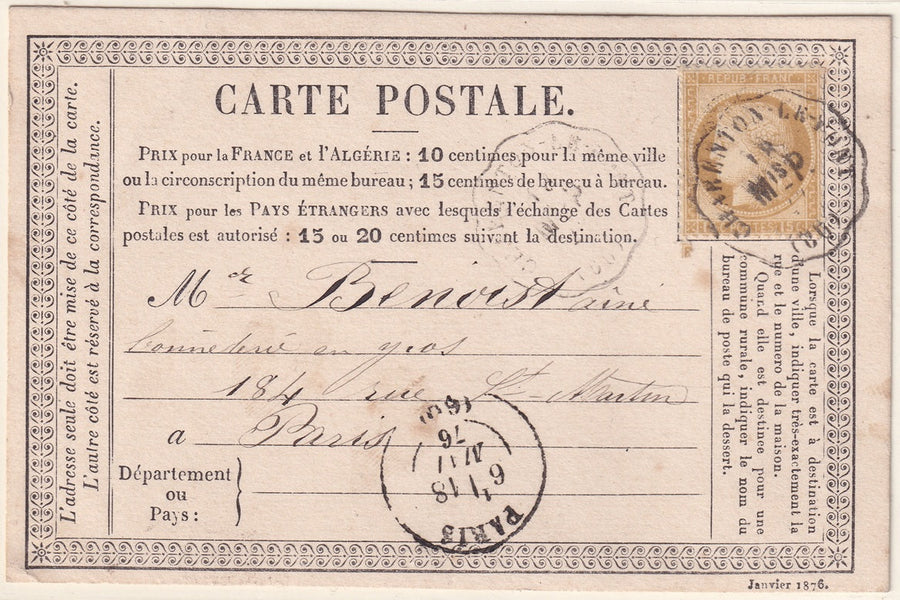 CARTE POSTALE.
PRIX pour la FRANCE et l'ALGÉRIE : 10 centimes pour la même ville
ou la circonscription du même bureau ; 15 centimes de bureau à bureau.
PRIX pour les PAYS ÉTRANGERS avec lesquels l'échange des Cartes
postales est autorisé : 15 ou 20 centimes suivant la destination.
Mer Benoist aîné
bonneterie en gros
184 rue St-Martin
a Paris
Département
ou
Pays :
L'adresse seule doit être mise de ce côté de la carte.
L'autre côté est réservé à la correspondance.
Lorsque la carte est à destination
d'une ville, indiquer très-exactement la
rue et le numéro de la maison.
Quand elle est destinée pour une
commune rurale, indiquer le nom du
bureau de poste qui la dessert.
REPUB FRANC
CHARENTON-LE-PONT
PARIS
18
76
(60)
Janvier 1876.